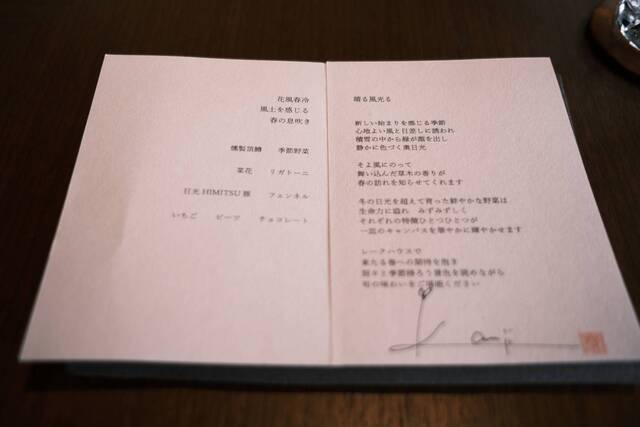 花風春冷
風土を感じる
春の息吹き
燻製頂鱒 季節野菜
菜花 リガトーニ
日光HIMITSU豚 フェンネル
いちご ビーツ チョコレート
晴る風光る
新しい始まりを感じる季節
心地よい風と日差しに誘われ
積雪の中から緑が顔を出し
静かに色づく奥日光
そよ風にのって
舞い込んだ草木の香りが
春の訪れを知らせてくれます
冬の日光を超えて育った鮮やかな野菜は
生命力に溢れ みずみずしく
それぞれの特徴ひとつひとつが
一皿のキャンバスを華やかに輝かせます
レークハウスで
来たる春への期待を抱き
刻々と季節移ろう景色を眺めながら
旬の味わいをご堪能ください